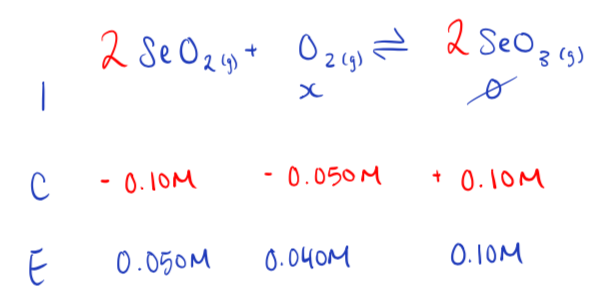 2 SeO₂(g) + O₂(g) ⇌ 2 SeO₃(g)
I x 0
C - 0.10M - 0.050M + 0.10M
E 0.050M 0.040M 0.10M